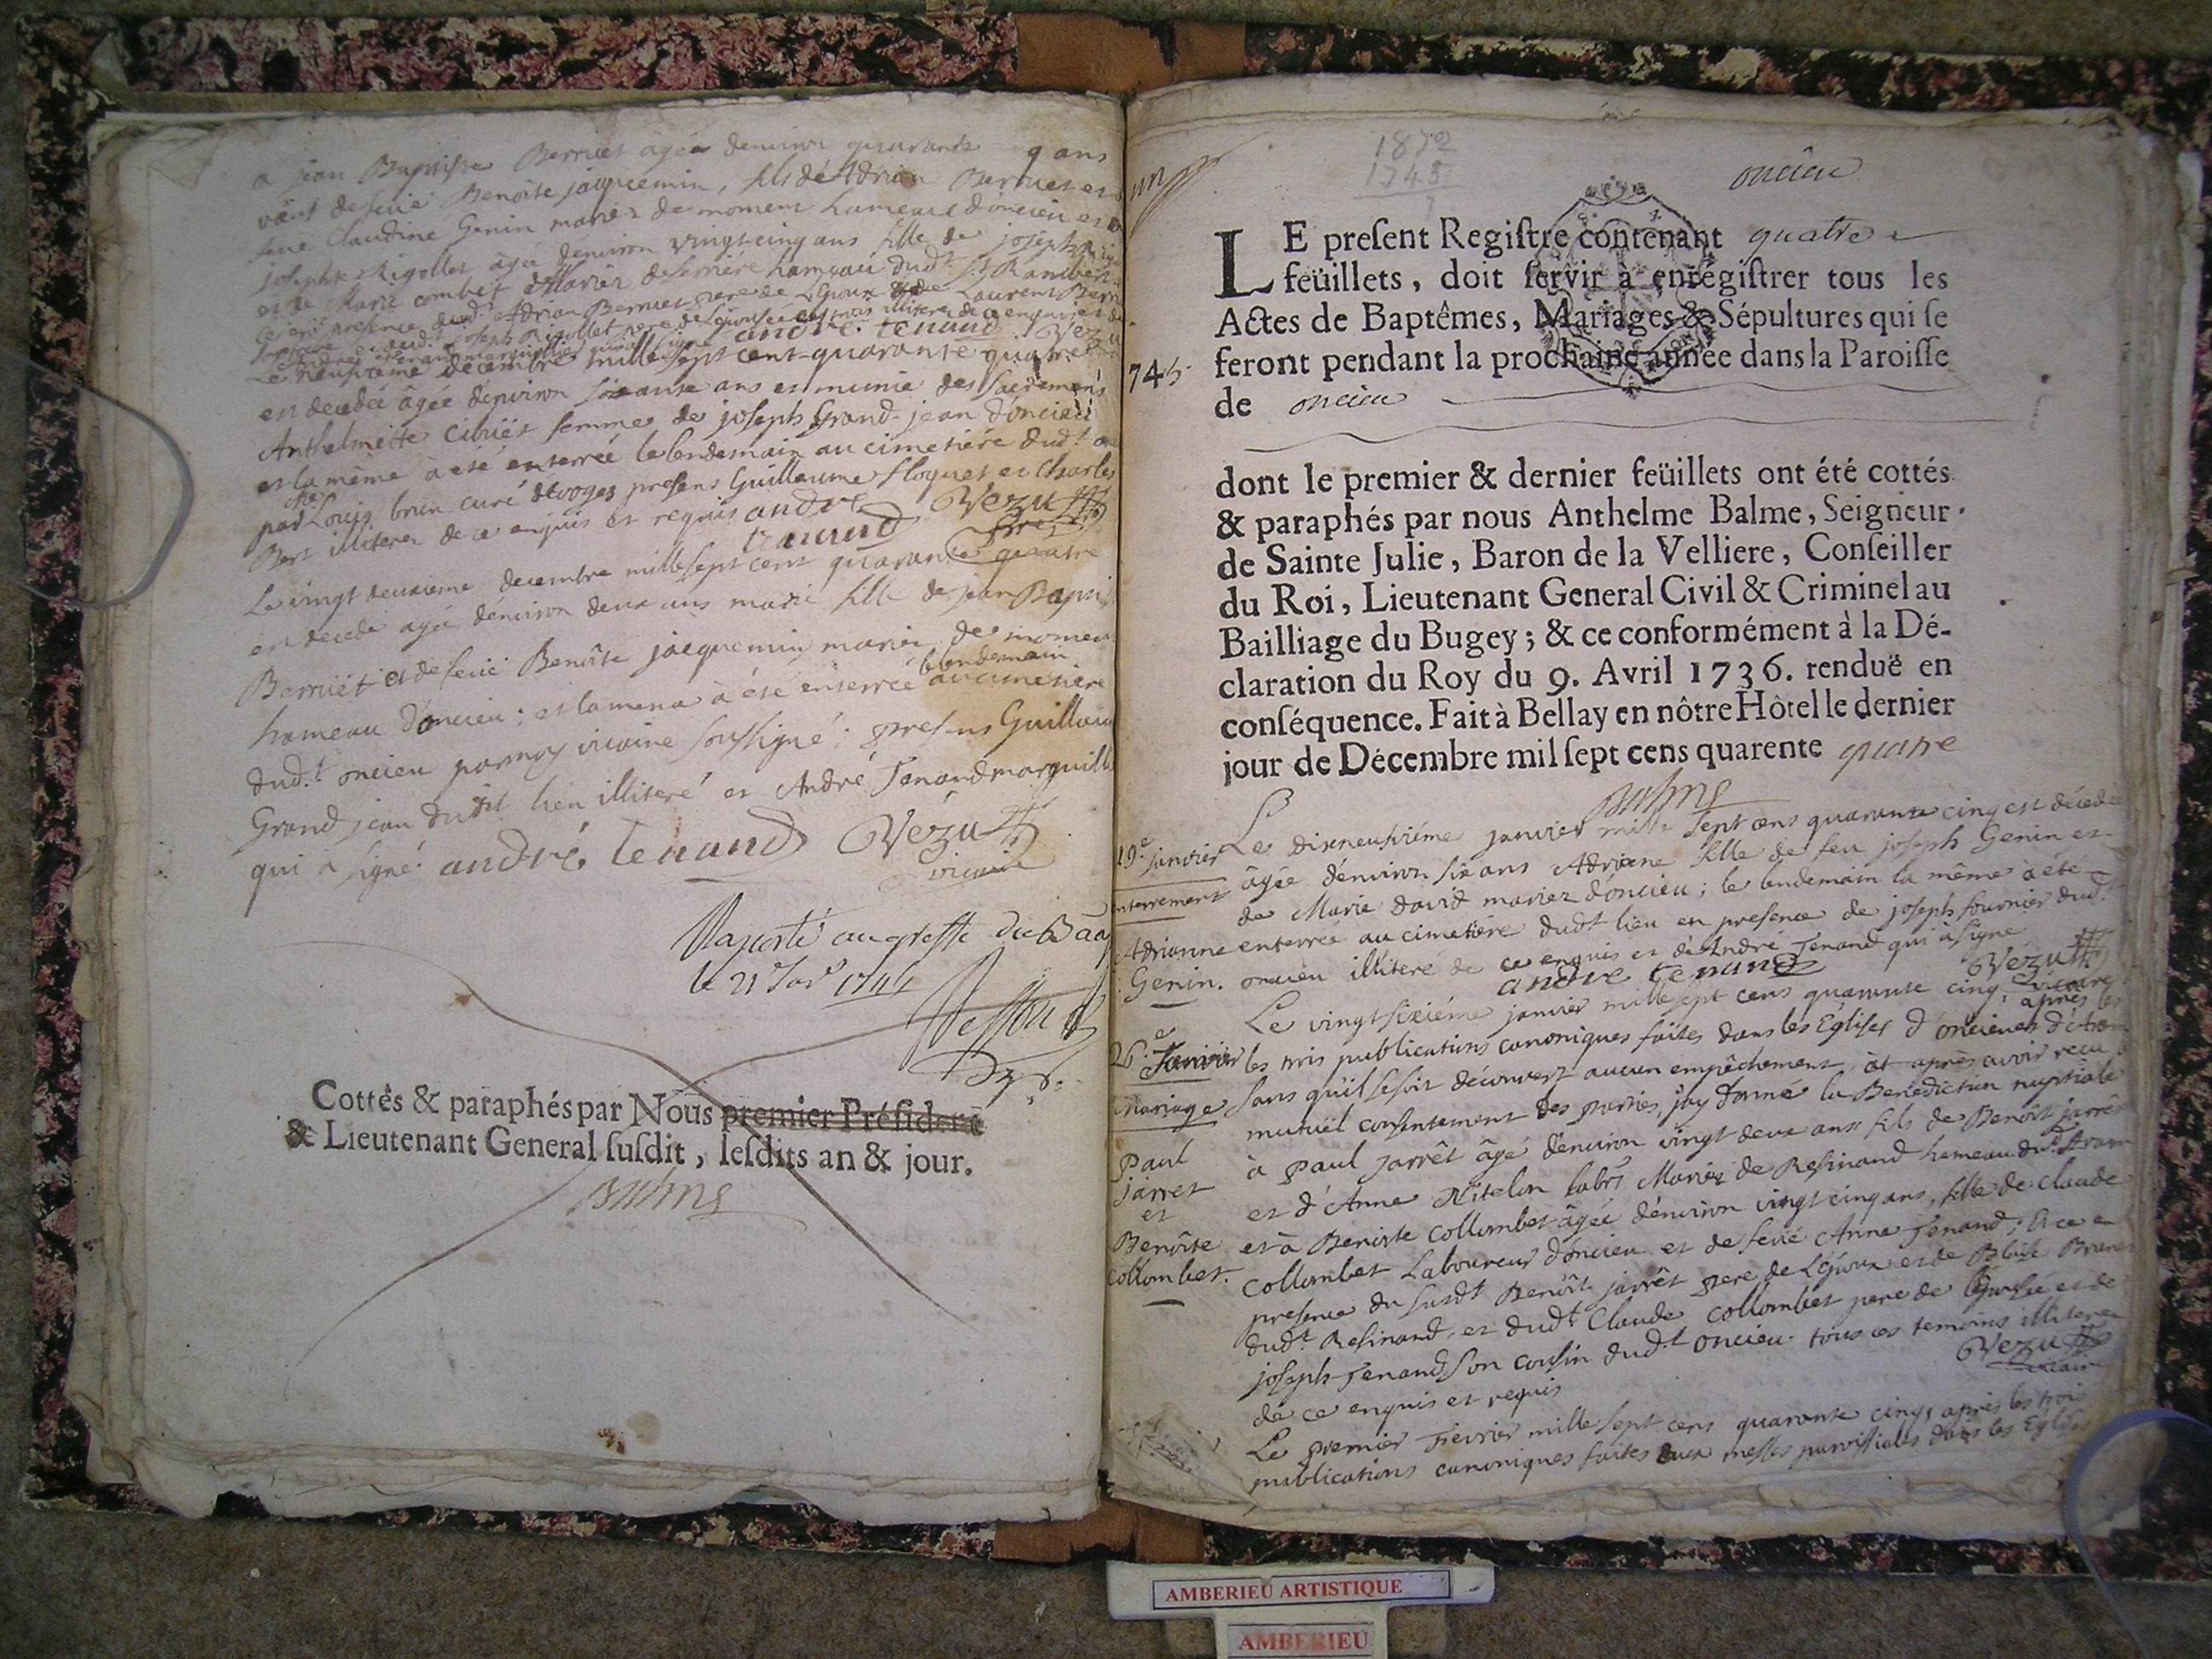 a jean Baptiste Berruet âgée d'environ quarante ans
vëuf de feüe Benoîte jacquemin, fils de Adrian Berruet et
feüe Claudine Genin mariez de momens hameaux d'oncieu et a
josephte Rigollet âgée d'environ vingt cinq ans fille de joseph
et de Marie combet Mariez de serriere hameau dudt St Rambert
ce en presence dudt Adrian Berruet pere de L'Epoux de Laurent
andré tenand Vezu
Le neufvieme décembre mille sept cent quarante quatre
est decedée âgée d'environ soixante ans et munie des Sacremens
Anthelmette Cibuët femme de joseph Grand-jean d'oncieu
et la même à été enterrée le lendemain au cimetiére dudt
par Louis brun curé d'evoges presens Guillaume Floquet et Charles
Bert illiterez de ce enquis et requis andré Vezu
tenand
Le vingt deuxieme decembre mille sept cent quarante quatre
est decedé âgée d'environ deux ans marie fille de jean Baptis
Berruët et de feüe Benoîte jacquemin mariez de momen
hameau d'oncieu; et la meme à été enterrée le lendemain au cimetiere
dudt oncieu par moy vicaire soussigné; presens Guillau
Grand jean dudit lieu illiteré et André Tenand marguill
qui à signé andré tenand Vezu
vicaire
Raporté au greffe du Baa
le 21 Janr 1745
Cottés & paraphés par Nous premier Présidens
& Lieutenant General susdit, lesdits an & jour.
Balme
1872
1745
7
un
oncieu
LE present Registre contenant quatre
feüillets, doit servir à enrégistrer tous les
Actes de Baptêmes, Mariages & Sépultures qui se
feront pendant la prochaine année dans la Paroisse
745
de oncieu
dont le premier & dernier feüillets ont été cottés
& paraphés par nous Anthelme Balme, Seigneur
de Sainte Julie, Baron de la Velliere, Conseiller
du Roi, Lieutenant General Civil & Criminel au
Bailliage du Bugey; & ce conformément à la Dé-
claration du Roy du 9. Avril 1736. renduë en
conséquence. Fait à Bellay en nôtre Hôtel le dernier
jour de Décembre mil sept cens quarente quatre
Balme
19e janvier
enterrement
Adrianne
Genin.
Le dixneufviéme janvier mille sept cens quarante cinq est décedée
âgée d'environ six ans Adriane fille de feu joseph Genin et
de Marie David mariez d'oncieu; le lendemain la même a été
enterrée au cimetiére dudt lieu en presence de joseph fournier dudt
oncieu illiteré de ce enquis et de André Tenand qui à signé
andré tenand Vezu
vicaire
26e Janvier
mariage
Paul
jarret
et
Benoîte
collombet.
Le vingt sixiéme janvier mille sept cens quarante cinq, après les
les trois publications canoniques faites dans les Eglises d'oncieu et d'Aran
sans qu'il se soit découvert aucun empêchement, et apres avoir reçu
mutuël consentement des parties, j'ay donné la Benediction nuptiale
à Paul jarrêt âgé d'environ vingt deux ans fils de Benoît jarrêt
et d'Anne Nitelon labrs Mariez de Resinand hameau dudt Aran
et à Benoite Collombet âgée d'environ vingt cinq ans, fille de Claude
Collombet Laboureur d'oncieu et de feüe Anne Tenand; Et ce en
presence du susdt Benoît jarrêt pere de L'Epoux et de Blaise Brunet
dudt Resinand, et dudt Claude Collombet pere de l'Epousée et de
joseph Tenand son cousin dudt oncieu. tous ces temoins illiterez
de ce enquis et requis Vezu
vicaire
Le premier Fevrier mille sept cens quarante cinq, après les trois
publications canoniques faites aux messes paroissiales dans les Eglises
AMBERIEU ARTISTIQUE
AMBERIEU